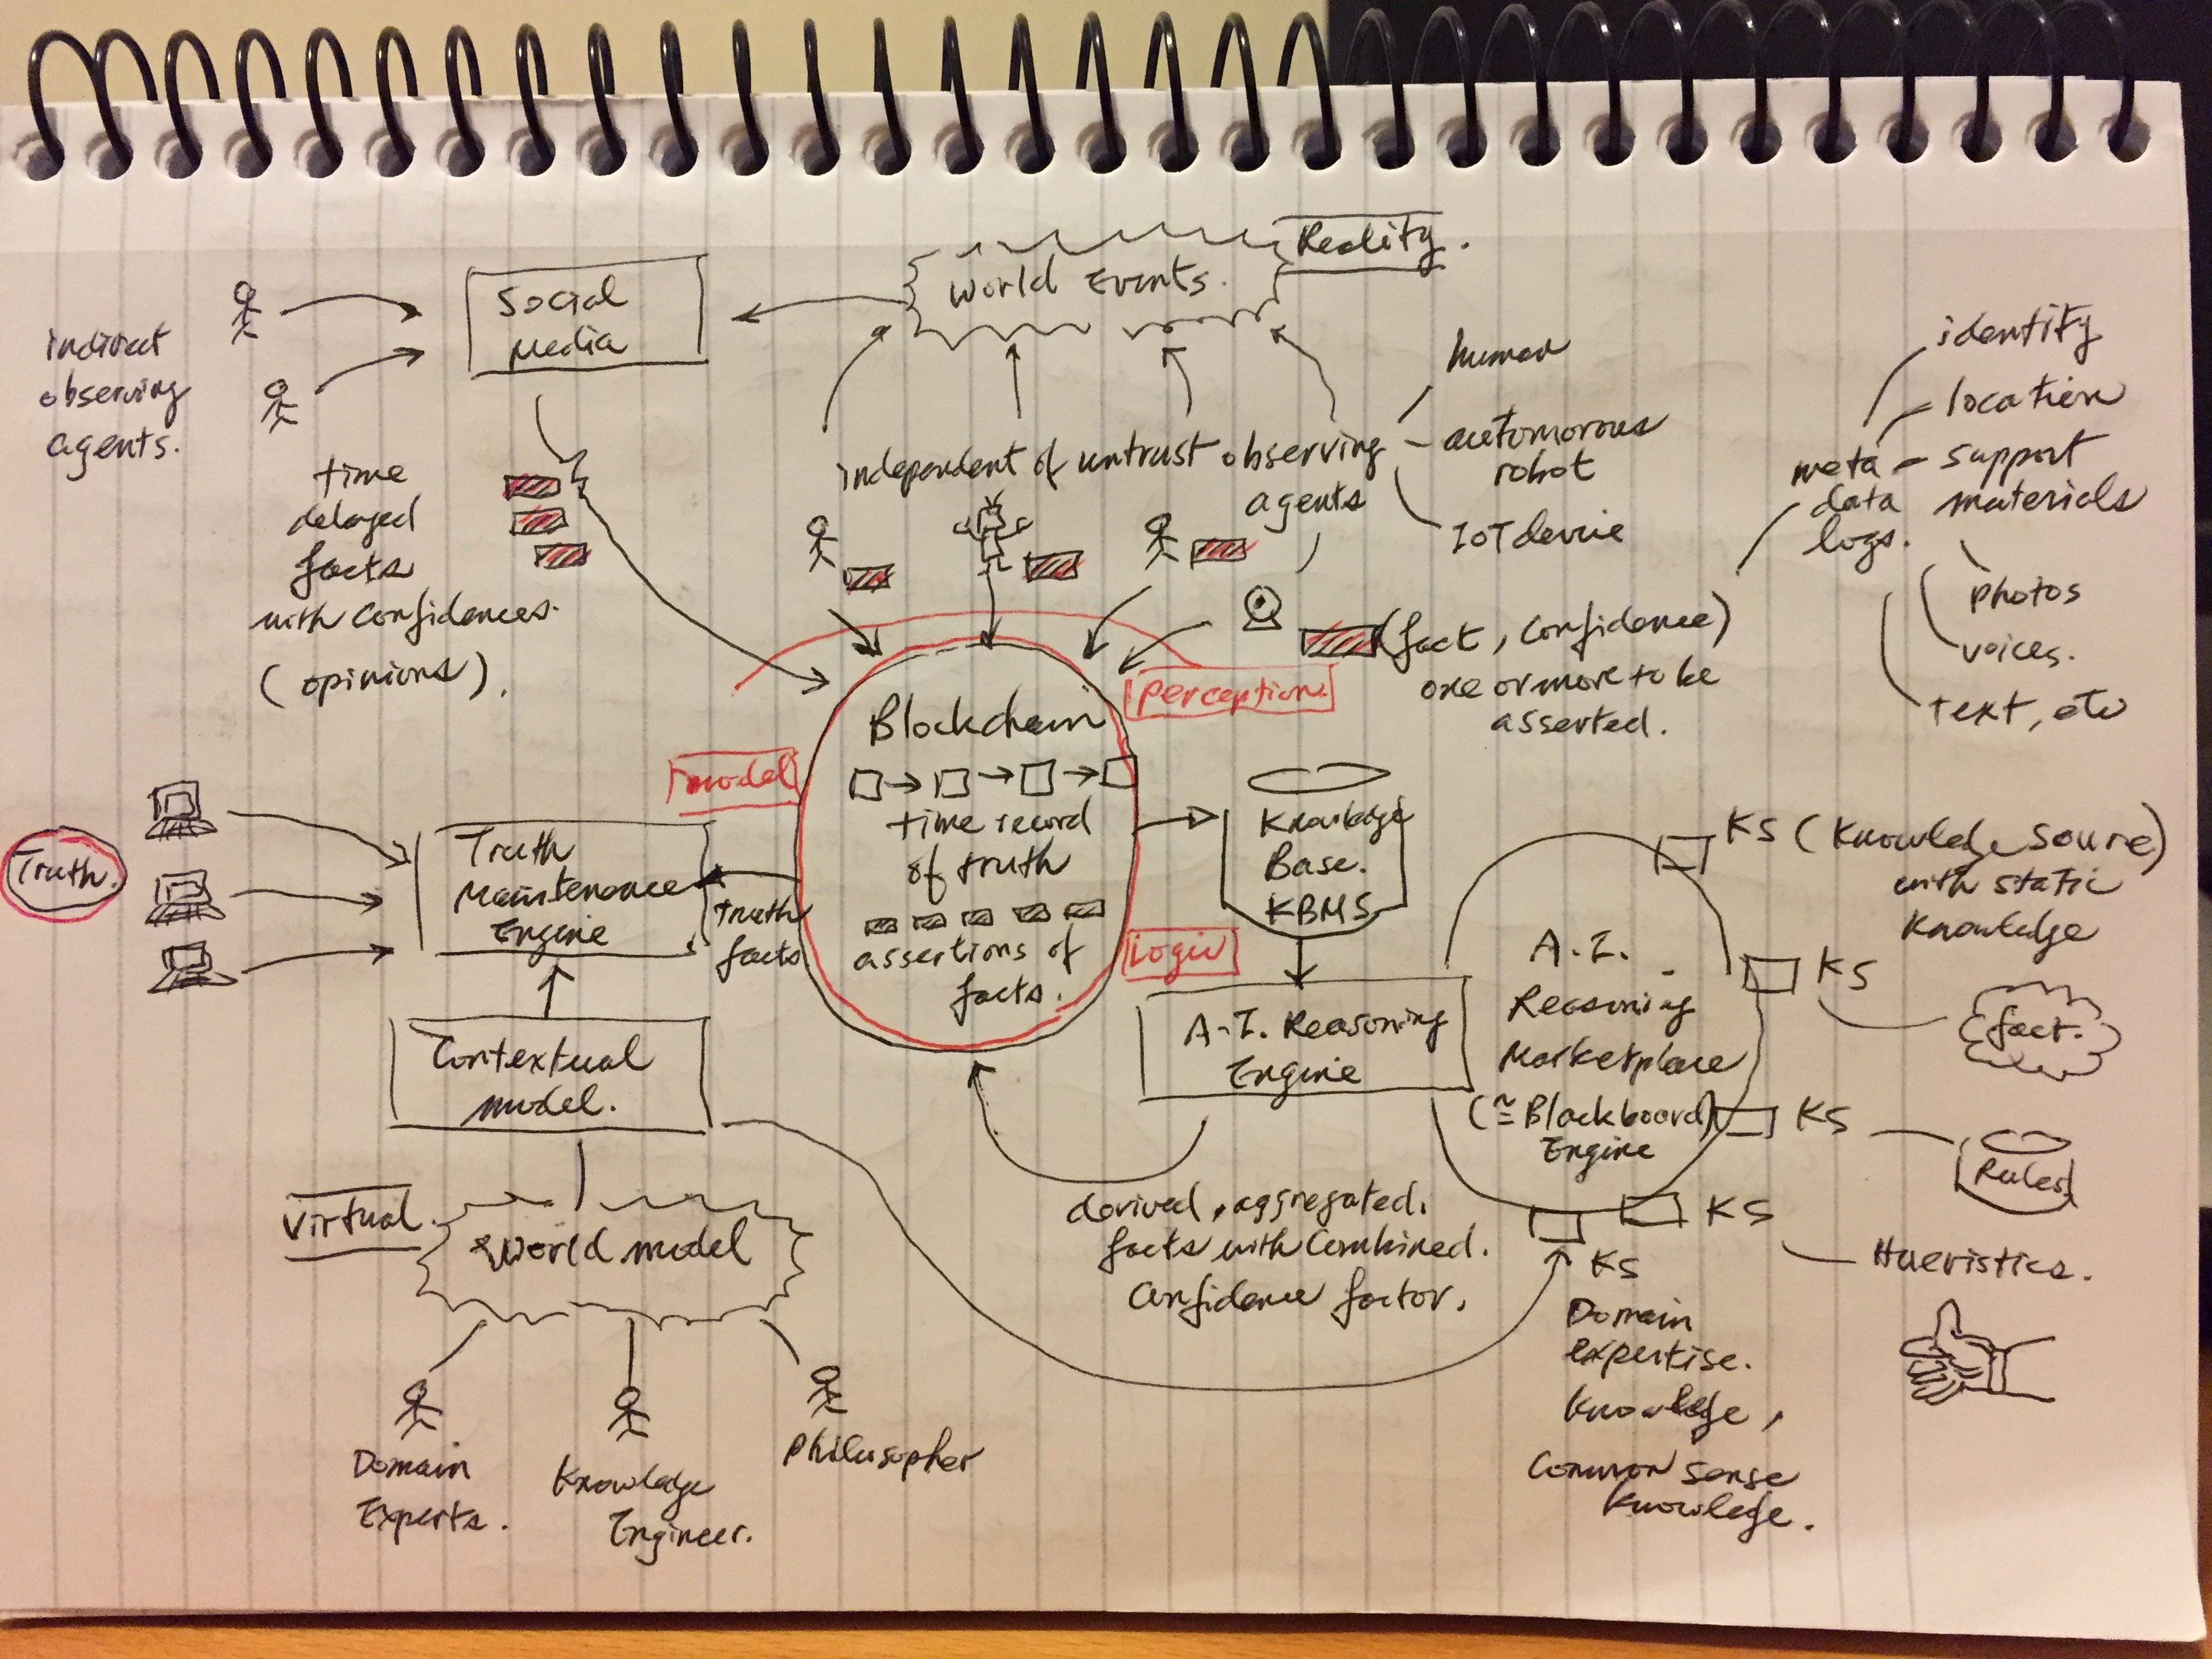 Reality.
World Events.
Social
Media
indirect
observing
agents.
time
delayed
facts
with confidences.
(opinions).
independent of untrust observing
agents
human
automorous
robot
IoT device
meta
data
logs.
identity
location
support
materials
photos
voices.
text, etc
(fact, confidence)
one or more to be
asserted.
perception
model
Logic
Blockchain
time record
of truth
assertions of
facts.
Truth.
Truth
Maintenance
Engine
truth
facts
Contextual
model.
Virtual
World model
Domain
Experts.
Knowledge
Engineer.
Philosopher
Knowledge
Base.
KBMS
A.I. Reasoning
Engine
derived, aggregated,
facts with Combined.
Confidence factor.
A.I.
Reasoning
Marketplace
(≅Blackboard)
Engine
KS (Knowledge Source)
with static
Knowledge
KS
fact.
KS
Rules
KS
Hueristics.
KS
Domain
expertise.
Knowledge,
Common sense
Knowledge.